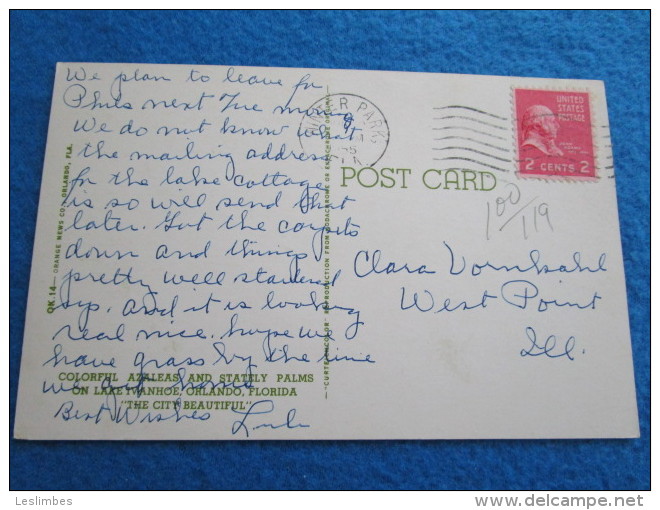 We plan to leave for
Phils next Tue morning
We do not know what
the mailing address
for the lake cottage
is so will send that
later. Got the carpets
down and things
pretty well
up. And it is looking
real nice. hope we
have grass by the time
we get home
Best Wishes Lulu
WINTER PARK
UNITED
STATES
POSTAGE
2 CENTS 2
POST CARD
100/119
Clara Vornkahl
West Point
Ill.
QK.14—ORANGE NEWS CO., ORLANDO, FLA.
"CURTEICHCOLOR" REPRODUCTION FROM KODACHROME OR ANSCHROME ORIGINAL
COLORFUL AZALEAS AND STATELY PALMS
ON LAKE IVANHOE, ORLANDO, FLORIDA
"THE CITY BEAUTIFUL"
Leslimbes
www.delcampe.net